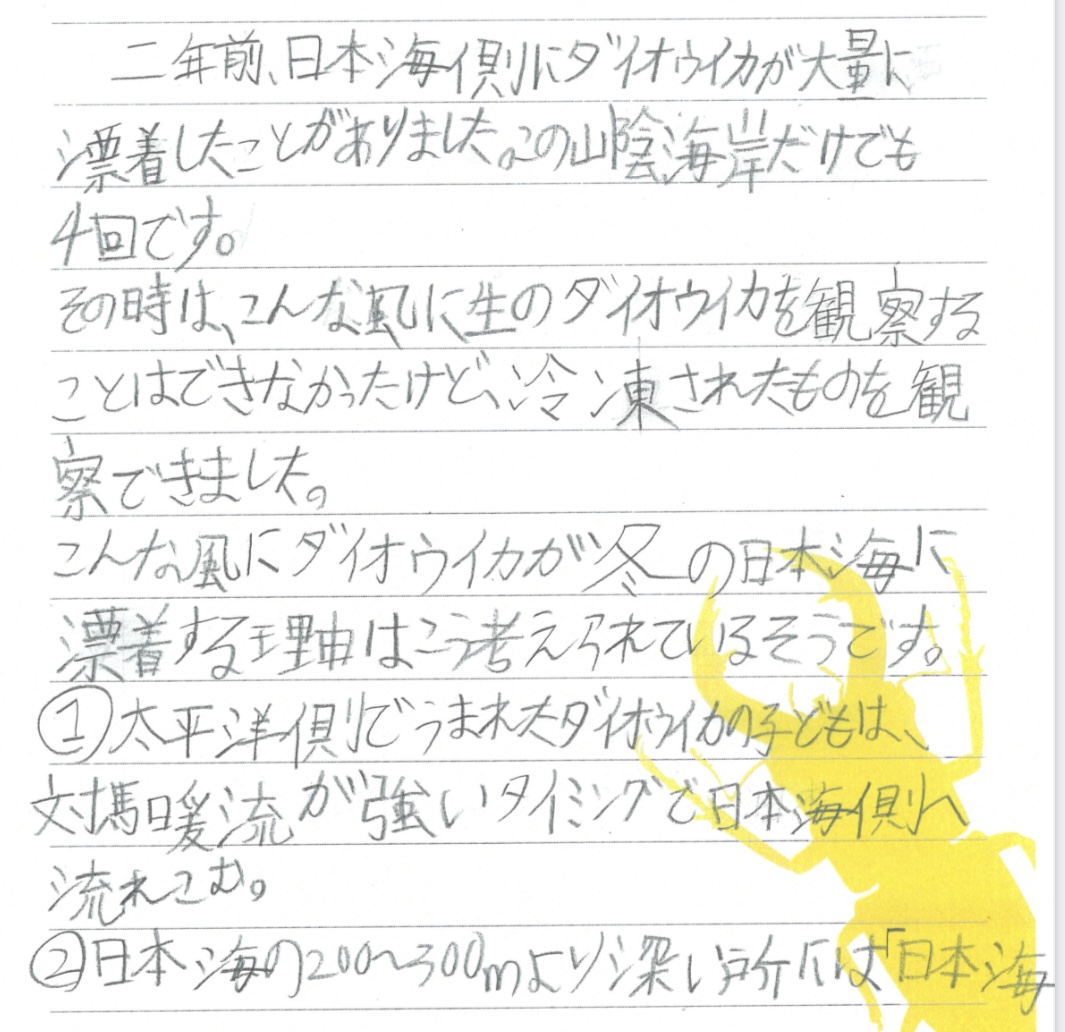 二年前、日本海側にダイオウイカが大量に
漂着したことがありました。この山陰海岸だけでも
4回です。
その時は、こんな風に生のダイオウイカを観察する
ことはできなかったけど、冷凍されたものを観
察できました。
こんな風にダイオウイカが冬の日本海に
漂着する理由はこう考えられているそうです。
①太平洋側でうまれたダイオウイカの子どもは、
対馬暖流が強いタイミングで日本海側へ
流れこむ。
②日本海の200〜300mより深い所には「日本海